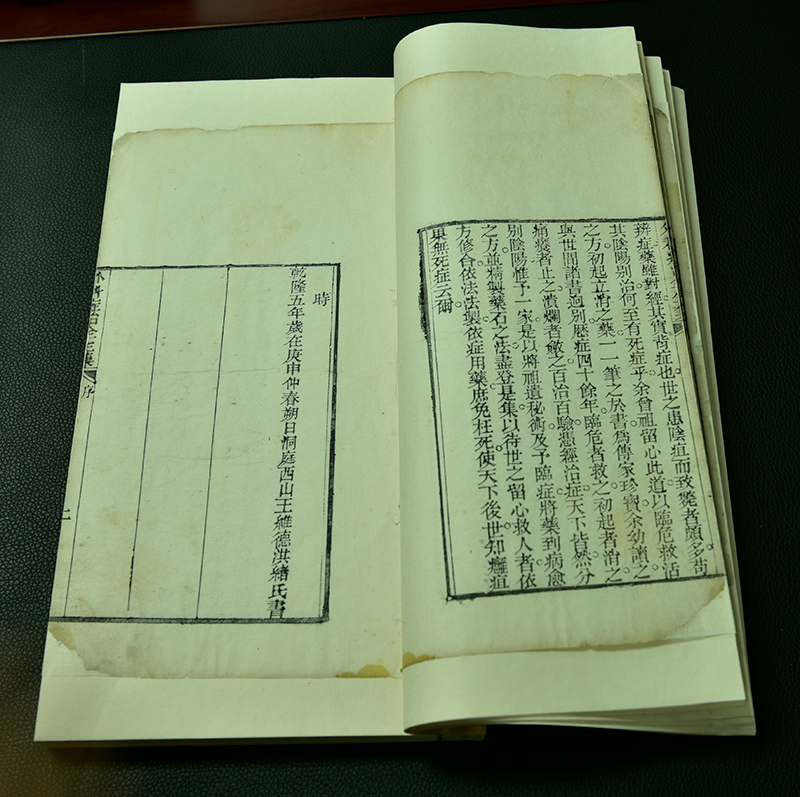 辨症藥雖對經其實背症也世之患陰疽而致斃者頗多苟
其陰陽別治何至有死症乎余曾祖留心此道以臨危救活
之方初起立消之藥一一筆之於書為傳家珍寶余幼讀之
與世間諸書迥別歷症四十餘年臨危者救之初起者消之
痛癢者止之潰爛者斂之百治百驗憑經治症天下皆然分
別陰陽惟予一家是以將祖遺秘術及予臨症將藥到病愈
之方並精製藥石之法盡登是集以待世之留心救人者依
方修合依法法製依症用藥庶免枉死使天下後世知癰疽
果無死症云爾
時
乾隆五年歲在庚申仲春朔日洞庭西山王維德洪緒氏書
外科症治全生集
序
二